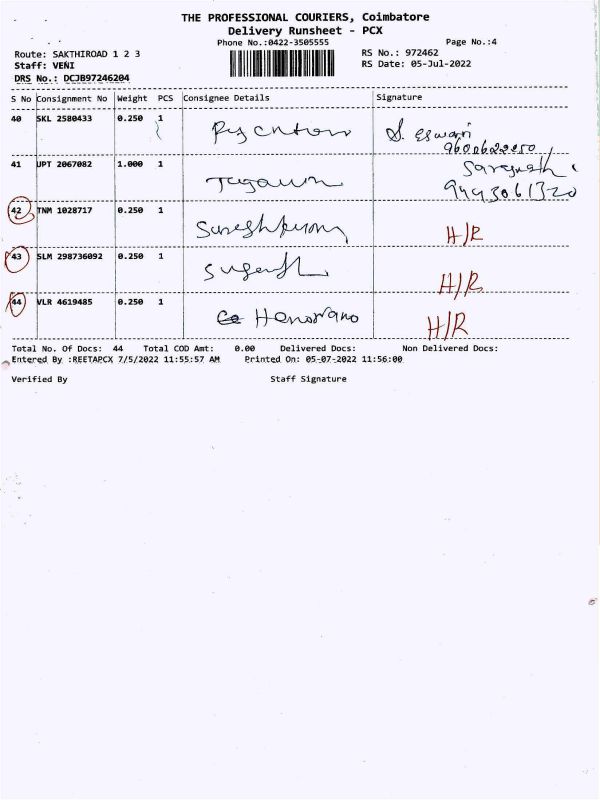 THE PROFESSIONAL COURIERS, Coimbatore
Delivery Runsheet - PCX
Phone No.:0422-3505555 Page No.:4
Route: SAKTHIROAD 1 2 3 RS No.: 972462
Staff: VENI RS Date: 05-Jul-2022
DRS No.: DCJB97246204
S No Consignment No Weight PCS Consignee Details Signature
40 SKL 2580433 0.250 1 S. Eswari
41 UPT 2067082 1.000 1
9443061320
42 TNM 1028717 0.250 1 H/R
43 SLM 298736092 0.250 1 H/R
44 VLR 4619485 0.250 1 H/R
Total No. Of Docs: 44 Total COD Amt: 0.00 Delivered Docs: Non Delivered Docs:
Entered By :REETAPCX 7/5/2022 11:55:57 AM Printed On: 05-07-2022 11:56:00
Verified By Staff Signature